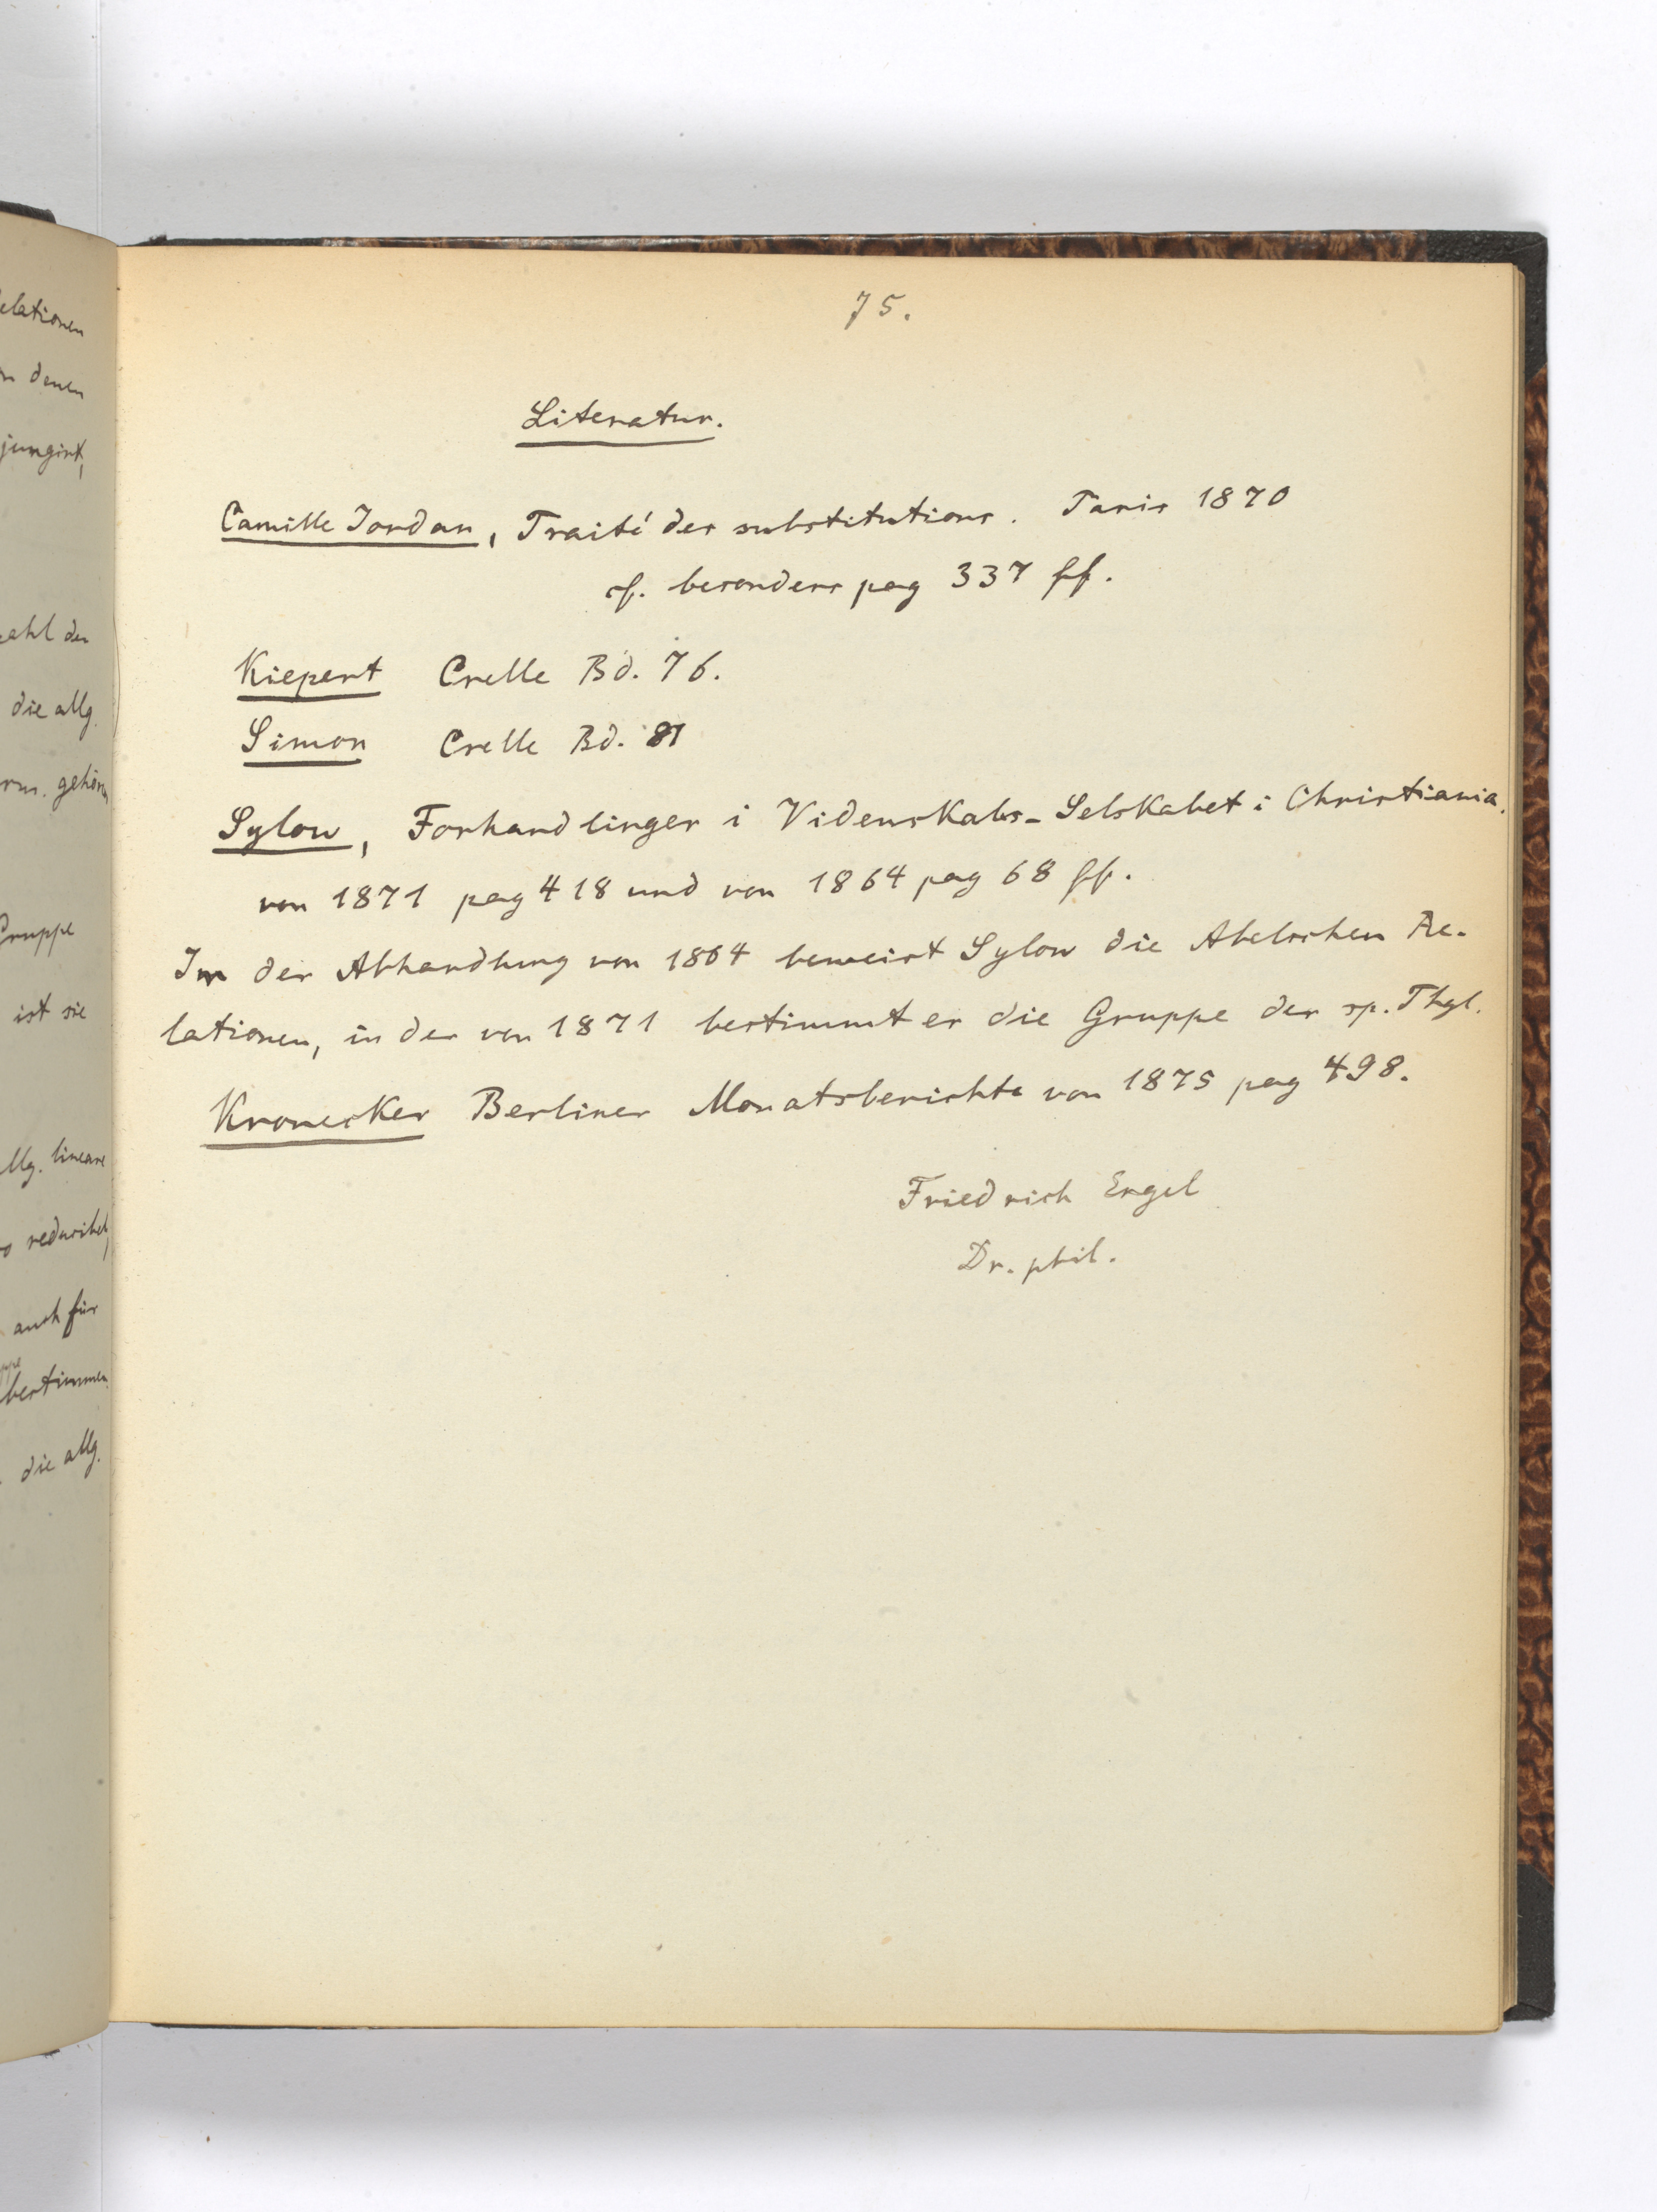 elationen
n denen
jungirt,
zahl der
die allg.
rm. gehören
Gruppe
ist sie
allg. lineare
so reducibel,
auch für
ppe
bestimmen
die allg.
75.
Literatur.
Camille Jordan, Traité des substitutions. Paris 1870
cf. besonders pag 337 ff.
Kiepert Crelle Bd. 76.
Simon Crelle Bd. 81
Sylow, Forhandlinger i Videnskabs-Selskabet i Christiania.
von 1871 pag 418 und von 1864 pag 68 ff.
In der Abhandlung von 1864 beweist Sylow die Abelschen Re-
lationen, in der von 1871 bestimmt er die Gruppe der sp. Thgl.
Kronecker Berliner Monatsberichte von 1875 pag 498.
Friedrich Engel
Dr. phil.